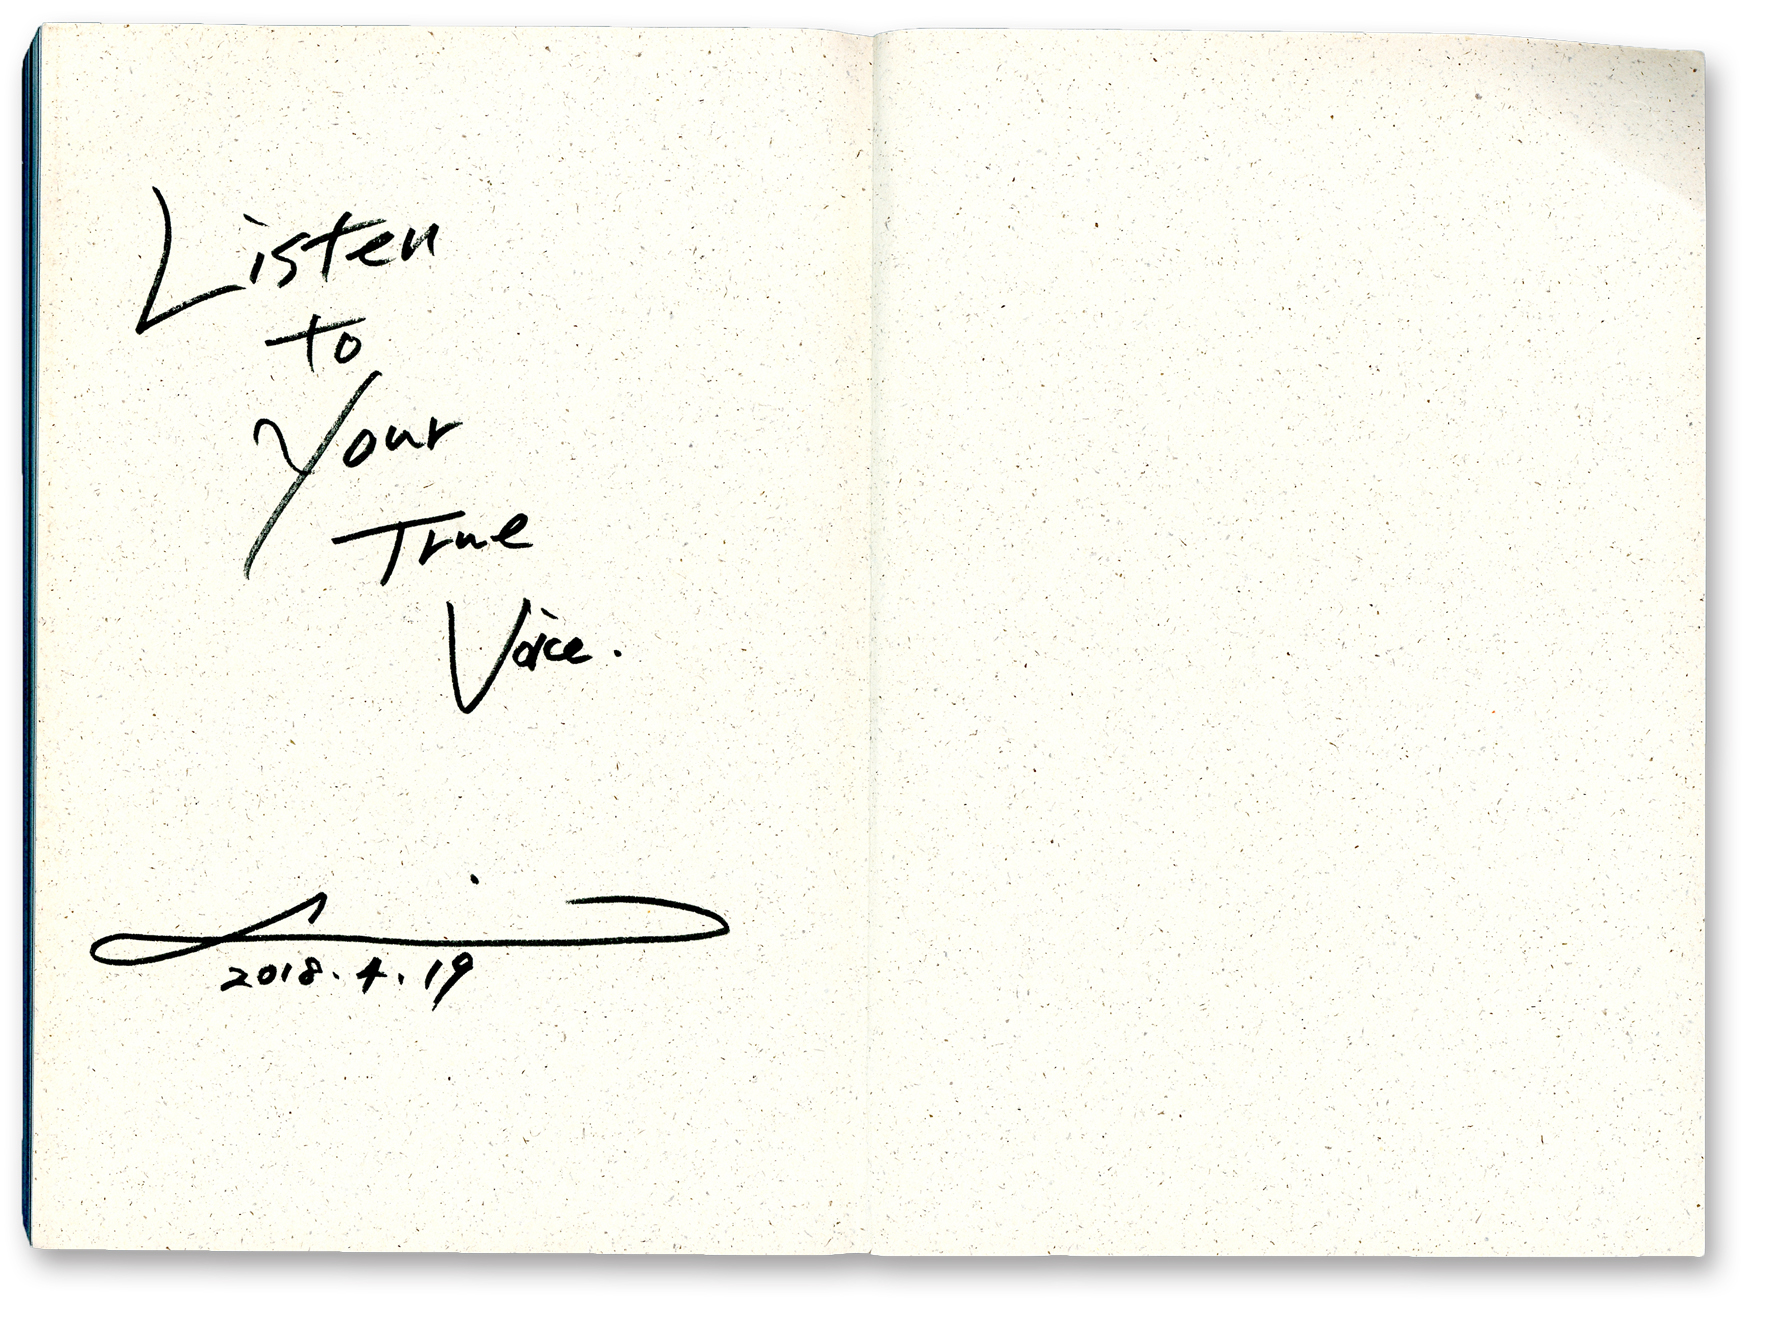 Listen
to
Your
True
Voice.
2018.4.19